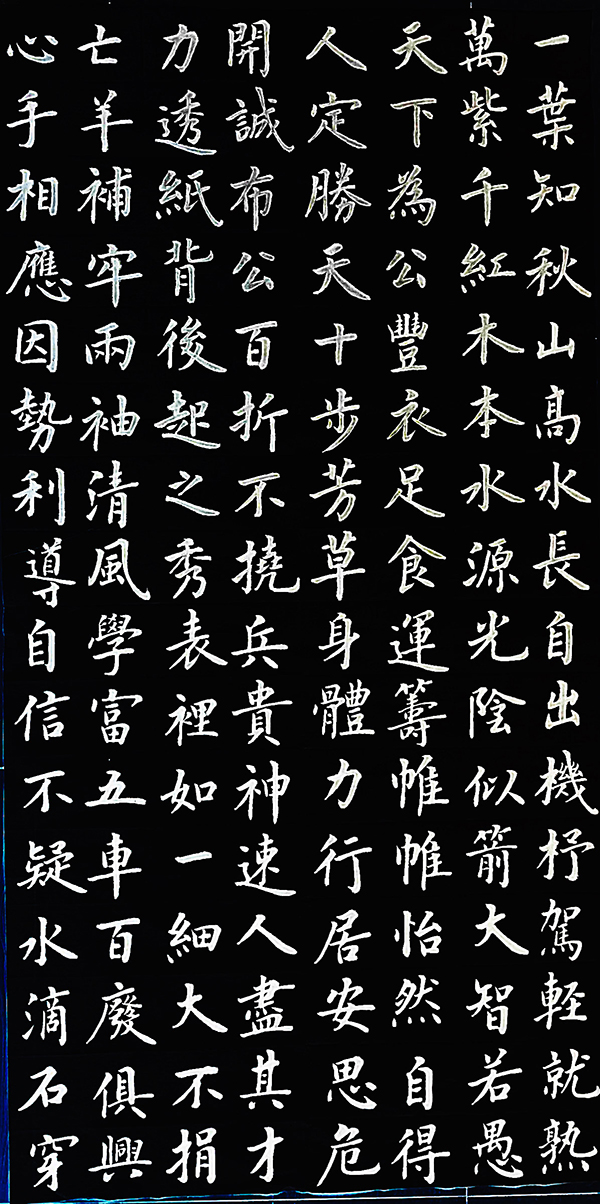 一葉知秋山高水長自出機杼駕輕就熟
萬紫千紅木本水源光陰似箭大智若愚
天下為公豐衣足食運籌帷帷怡然自得
人定勝天十步芳草身體力行居安思危
開誠布公百折不撓兵貴神速人盡其才
力透紙背後起之秀表裡如一細大不捐
亡羊補牢兩袖清風學富五車百廢俱興
心手相應因勢利導自信不疑水滴石穿